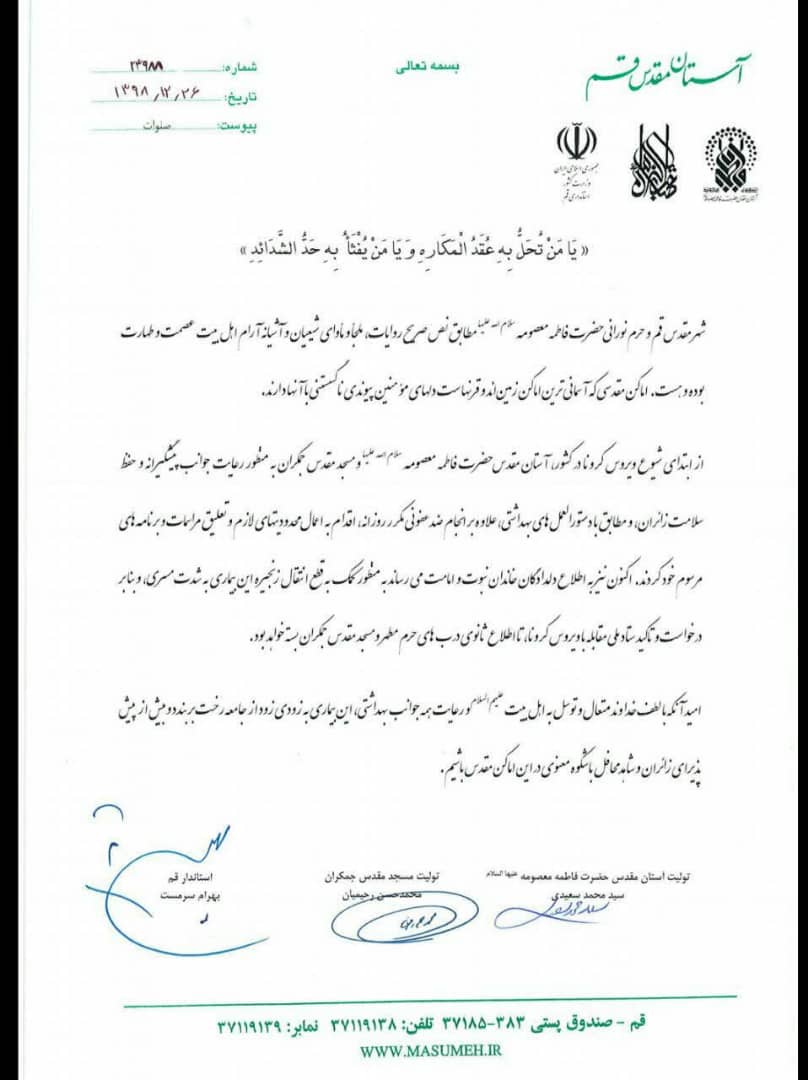 آستان مقدس قم
بسمه تعالی
شماره: ۲۳۹۸۹
تاریخ: ۱۳۹۸/۱۲/۲۶
پیوست: صلوات
جمهوری اسلامی ایران
وزارت کشور
استانداری قم
« یَا مَنْ تُحَلُّ بِهِ عُقَدُ الْمَکَارِهِ وَ یَا مَنْ یُفْثَأُ بِهِ حَدُّ الشَّدَائِدِ »
شهر مقدس قم و حرم نورانی حضرت فاطمه معصومه سلام الله علیها مطابق نص صریح روایات، ملجأ و مأوای شیعیان و آشیانه آرام اهل بیت عصمت و طهارت
بوده و هست. اماکن مقدسی که آسمانی ترین اماکن زمین اند و قرنهاست دلهای مؤمنین پیوندی ناگسستنی با آنها دارند.
از ابتدای شیوع ویروس کرونا در کشور، آستان مقدس حضرت فاطمه معصومه سلام الله علیها و مسجد مقدس جمکران به منظور رعایت جوانب پیشگیرانه و حفظ
سلامت زائران، و مطابق با دستورالعمل های بهداشتی، علاوه بر انجام ضد عفونی مکرر روزانه، اقدام به اعمال محدودیتهای لازم و تعلیق مراسمات و برنامه های
مرسوم خود کردند. اکنون نیز به اطلاع دلدادگان خاندان نبوت و امامت می رساند به منظور کمک به قطع انتقال زنجیره این بیماری به شدت مسری، و بنابر
درخواست و تاکید ستاد ملی مقابله با ویروس کرونا، تا اطلاع ثانوی درب های حرم مطهر و مسجد مقدس جمکران بسته خواهد بود.
امید آنکه با لطف خداوند متعال و توسل به اهل بیت علیهم السلام و رعایت همه جوانب بهداشتی، این بیماری به زودی زود از جامعه رخت بربندد و بیش از پیش
پذیرای زائران و شاهد محافل باشکوه معنوی در این اماکن مقدس باشیم.
تولیت آستان مقدس حضرت فاطمه معصومه علیها السلام
سید محمد سعیدی
تولیت مسجد مقدس جمکران
محمدحسن رحیمیان
استاندار قم
بهرام سرمست
قم - صندوق پستی ۳۸۳-۳۷۱۸۵ تلفن: ۳۷۱۱۹۱۳۸ نمابر: ۳۷۱۱۹۱۳۹
WWW.MASUMEH.IR